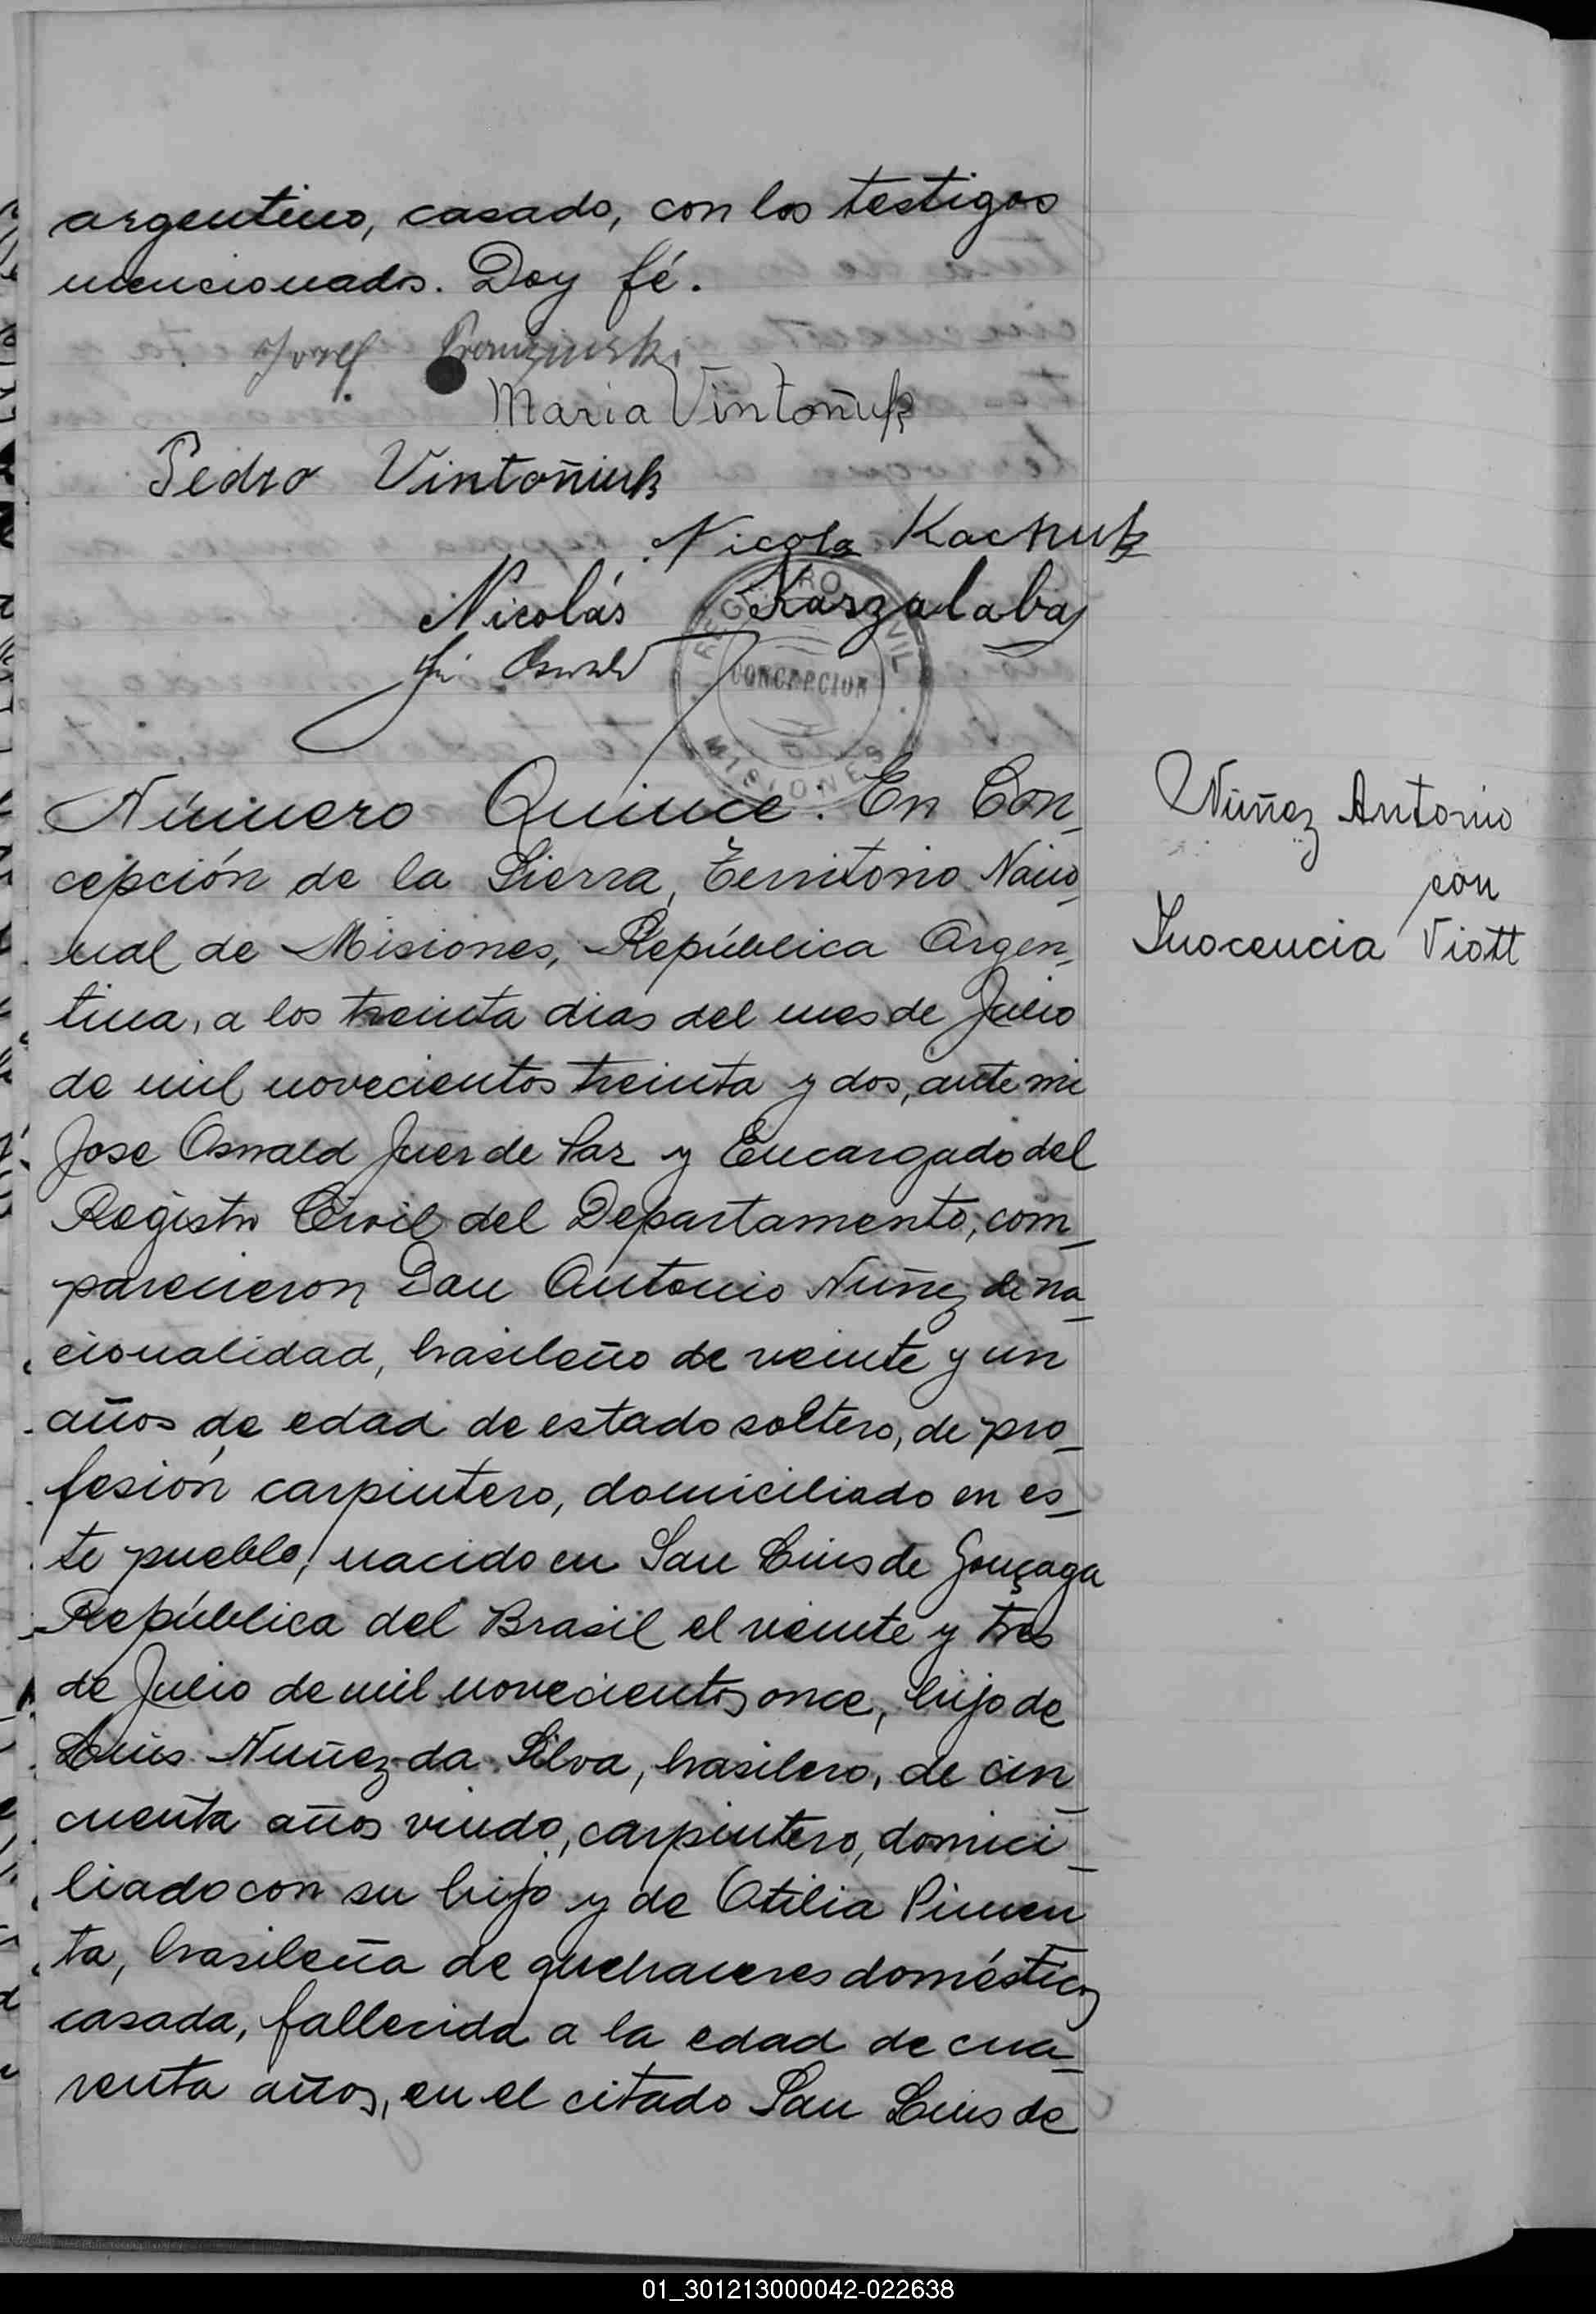 argentino, casado, con los testigos
mencionados. Doy fé.
Josef
Maria Vintoñuk
Pedro Vintoñiuk
Nicola Kachuk
Nicolás Karzalaba
José Oswald
REGISTRO CIVIL
CONCEPCION
MISIONES
Número Quince. En Con_
cepción de la Sierra, Territorio Nacio_
nal de Misiones, República Argen_
tina, a los treinta dias del mes de Julio
de mil novecientos treinta y dos, ante mi
Jose Oswald Juez de Paz y Encargado del
Registro Civil del Departamento, com_
parecieron Don Antonio Nuñez de na_
cionalidad, brasileño de veinte y un
años de edad de estado soltero, de pro_
fesión carpintero, domiciliado en es_
te pueblo, nacido en San Luis de Gonçaga
República del Brasil el veinte y tres
de Julio de mil novecientos once, hijo de
Luis Nuñez da Silva, brasilero, de cin_
cuenta años viudo, carpintero, domici_
liado con su hijo y de Otilia Pimen
ta, brasileña de quehaceres domésticos
casada, fallecida a la edad de cua_
renta años, en el citado San Luis de
Nuñez Antonio
con
Inocencia Viott
01_301213000042-022638